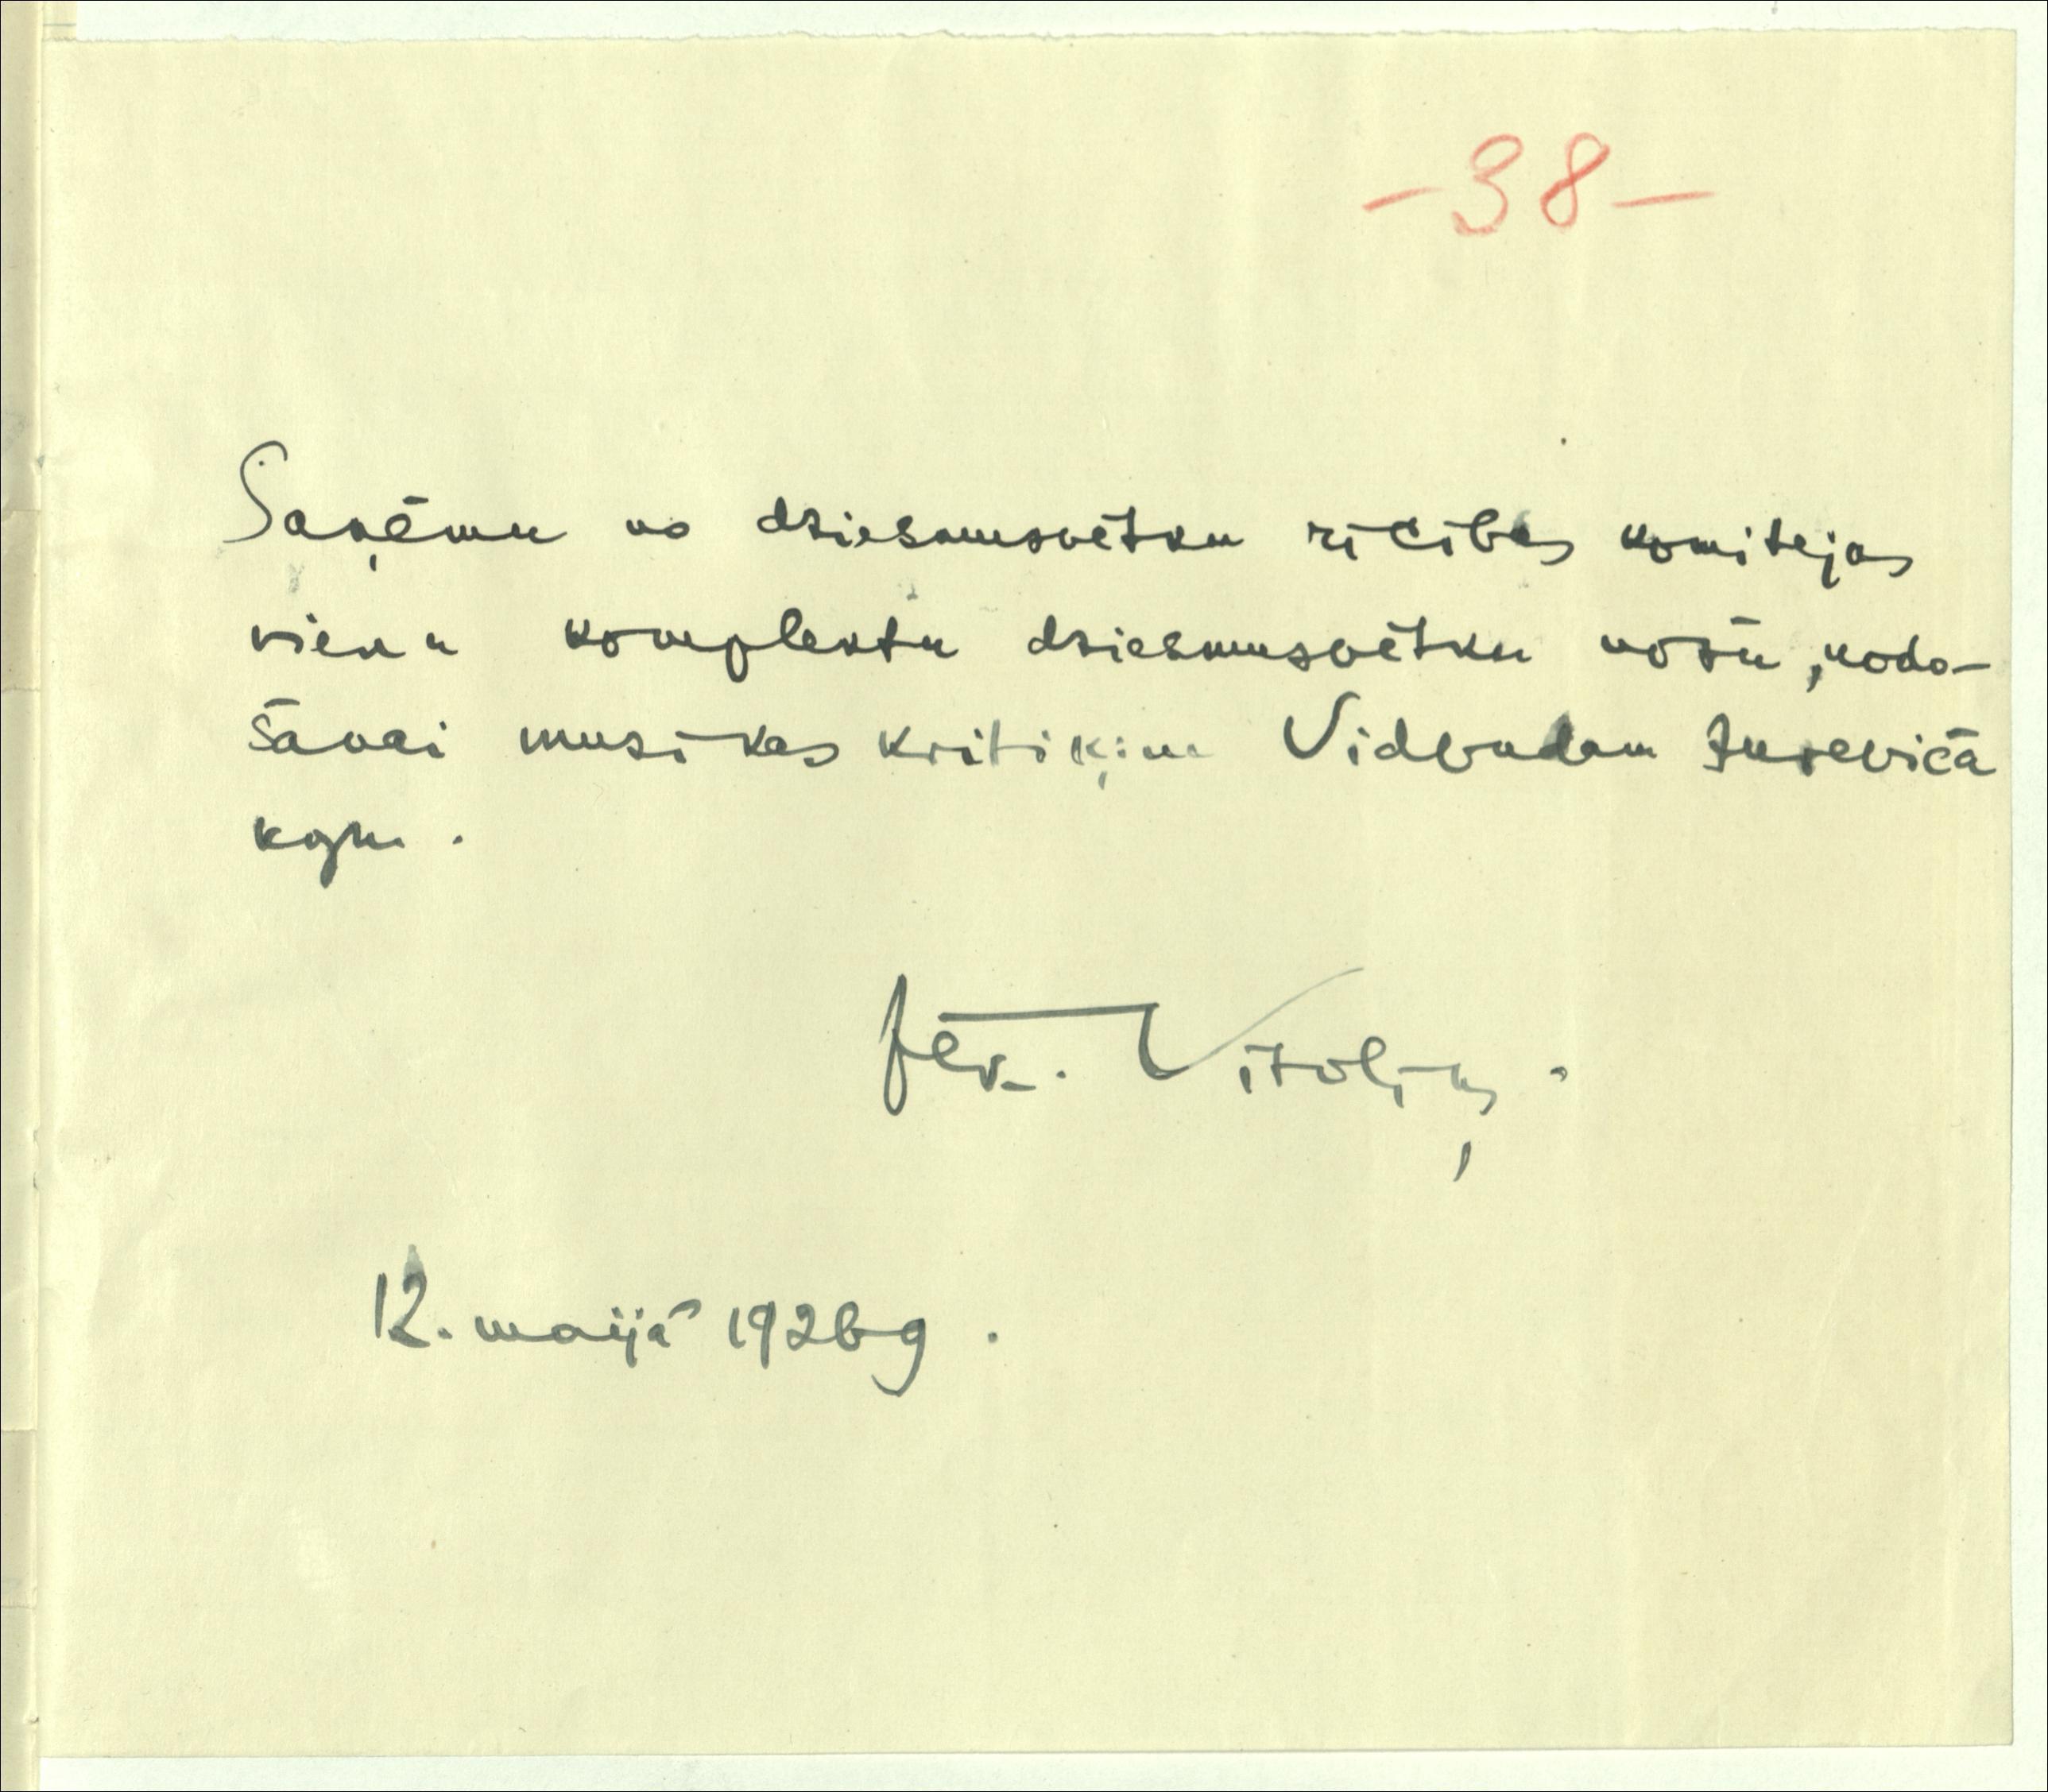 -38-
Saņēmu no dziesmusvētku rīcības komitejas
vienu komplektu dziesmusvētku nošu, nodo-
šanai musikas kritiķim Vidvudam Jurevičā
kgm.
Jēk. Vītoliņš.
12. maijā 1926 g.